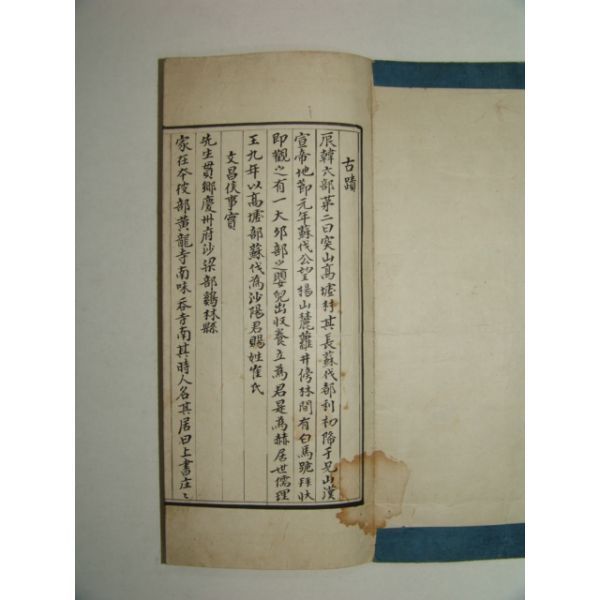 古蹟
辰韓六部第二曰突山高墟村其長蘇伐都利初降于兄山漢
宣帝地節元年蘇伐公望揚山麓蘿井傍林間有白馬跪拜狀
即觀之有一大卵部之嬰兒出收養立為君是為赫居世儒理
王九年以高墟部蘇伐為沙陽君賜姓崔氏
文昌侯事實
先生貫鄕慶州府沙梁部鷄林縣
家在本彼部黃龍寺南味吞寺南其時人名其居曰上書庄〻